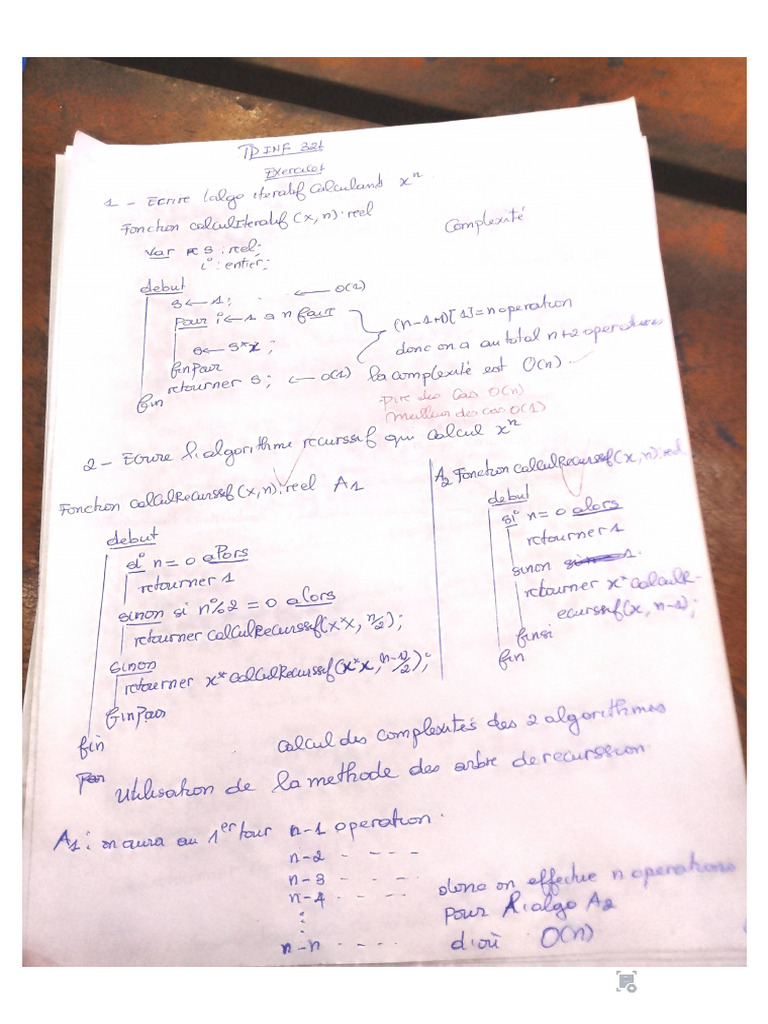 TD INF 321
Exercice1
1 - Ecrire l'algo iteratif calculant x^n
Fonction calculIteratif(x, n): reel
Complexité
Var s : reel;
i : entier;
debut
s ← 1; ← O(1)
pour i ← 1 a n faire
s ← s*x;
finpour
retourner s; ← O(1)
fin
(n-1+1)[1] = n operation
donc on a au total n+2 operations
la complexité est O(n)
pire des cas O(n)
meilleur des cas O(1)
2 - Ecrire l'algorithme recurssif qui calcul x^n
Fonction calculRecurssif(x,n): reel A1
debut
si n = 0 alors
retourner 1
sinon si n%2 = 0 alors
retourner calculRecurssif(x*x, n/2);
sinon
retourner x*calculRecurssif(x*x, (n-1)/2);
fin
A2 Fonction calculRecurssif(x,n): reel
debut
si n = 0 alors
retourner 1
sinon
retourner x*calculR-
ecurssif(x, n-1);
finsi
fin
calcul des complexités des 2 algorithmes
Utilisation de la methode des arbre de recurssion.
A1: on aura au 1er tour n-1 operation.
n-2 - - - -
n-3 - - - -
n-4 - - - -
⋮
n-n - - - -
donc on effectue n operations
pour l'algo A2
d'où O(n)